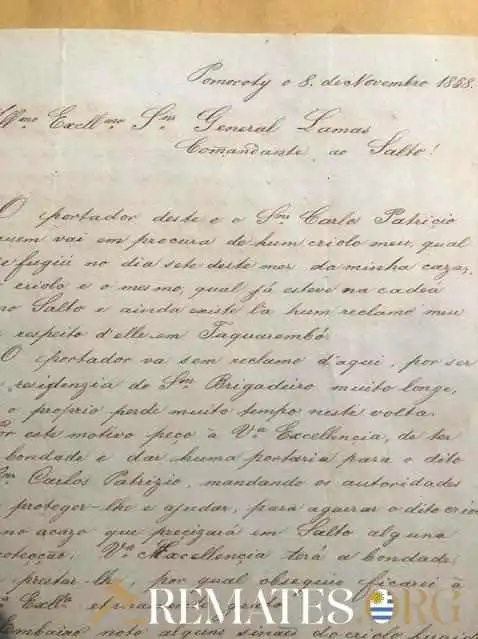 Pomocoty o 8. de Novembro 1858.
Ill.mo Excell.mo Snr General Lamas
Comandante ao Salto!
O portador deste e o Snr Carlo Patricio
quem vai em procura de hum criolo meu, qual
se fugiu no dia sete deste mes da minha caza,
criolo e o mesmo, qual já esteve na cadea
no Salto e ainda existe la hum reclamo meu
respeito d'elle em Taquarembó.
O portador va sem reclamo d'aqui, por ser
residenzia do Snr Brigadeiro muito longe,
o proprio perde muito tempo neste volta.
Por este motivo peço à V.a Excellencia, de ter
bondade e dar huma portaria para o dito
Snr Carlos Patrizio, mandando os autoridades
proteger-lhe e ajudar, para agarar o dito crio
no acazo que precizará em Salto alguna
protecção; V.a Excellencia terá a bondade;
prestar-lhe, por qual obsequio ficarei à
V.a Exll.a
Embaixo noto alguns sinais do criolo
REMATES.ORG